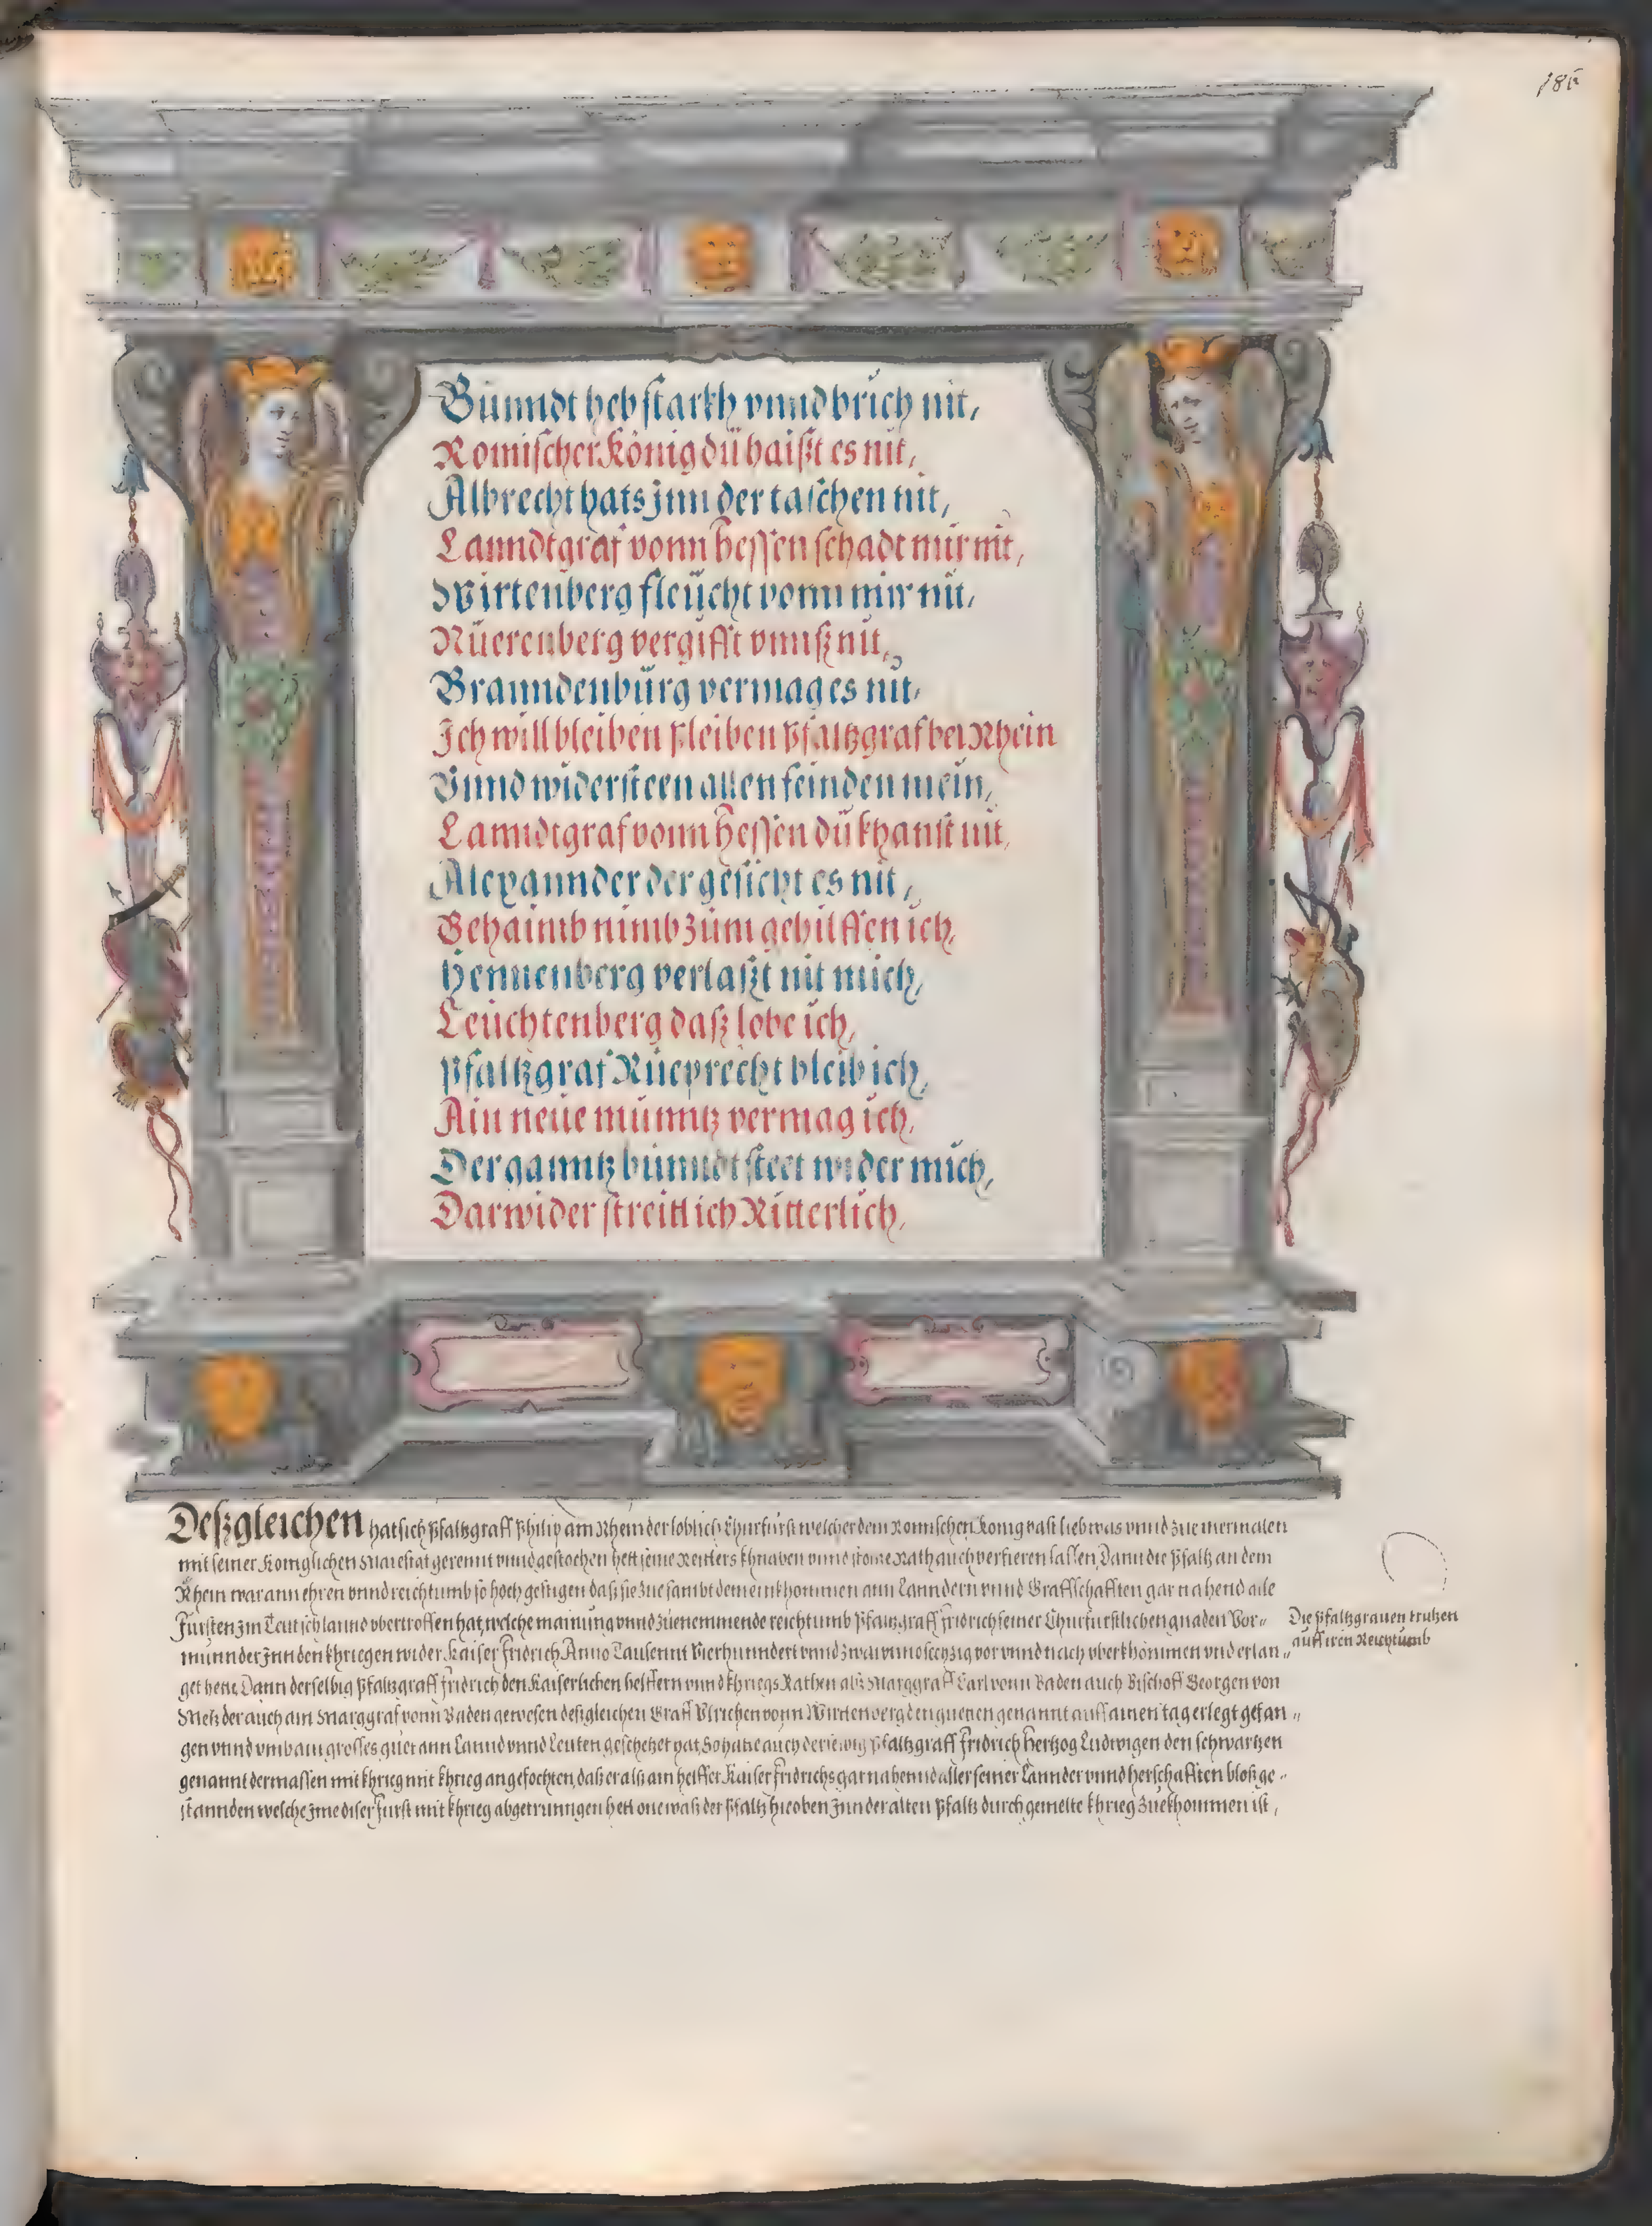 186
Bünndt heb starkh vnnd brich nit,
Romischer König dü haisst es nit,
Albrecht hats Jnn der taschen nit,
Lanndtgraf vonn Hessen schadt mir nit,
Wirtenberg fleücht vonn mir nit,
Nüerenberg vergifft vnnß nit,
Branndenbürg vermag es nit,
Ich will bleiben pleiben Pfaltzgraf bei Rhein
Vnnd widersteen allen feinden mein,
Lanndtgraf vonn Hessen dü khanst nit,
Alexannder der gesicht es nit,
Behaimb nimb züm gehilffen ich,
Hennenberg verlaßt nit mich,
Leüchtenberg daß lobe ich,
Pfaltzgraf Rüeprecht bleib ich,
Ain neüe münntz vermag ich,
Der ganntz bünndt steet wider mich,
Darwider streitt ich Ritterlich,
Deßgleichen hat sich Pfaltzgraff Philip am Rhein der loblich Churfürst welcher dem Romischen Konig vast lieb was vnnd zue mermalen
mit seiner Koniglichen Maiestat gerennt vnnd gestochen hett seine Reutters khnaben vnnd Rath auch verfieren lassen, Dann die Pfaltz an dem
Rhein war ann ehren vnnd reichtumb so hoch gestigen daß sie zue sambt dem einkhommen ann Lanndern vnnd Graffschafften gar nahend alle
Fursten Jm Teutschlannd vbertroffen hat, welche mainung vnnd zuenemmende reichtumb Pfaltzgraff Fridrich seiner Churfurstlichen gnaden Vor-
munnder Jnn den khriegen wider Kaiser Fridrich Anno Tausennt Vierhunndert vnnd zwai vnnd sechzig vor vnnd nach vberkhommen vnd erlan-
get hett, Dann derselbig Pfaltzgraff Fridrich den Kaiserlichen helffern vnnd khriegs Rathen alß Marggraff Carl vonn Baden auch Bischoff Georgen von
Metz der auch ain Marggraf vonn Baden gewesen deßgleichen Graff Vlrichen vonn Wirttenberg den genannt auff ainen tag erlegt gefan-
gen vnnd vmb ain grosses guet ann Lannd vnnd Leuten geschetzet hat, So hatte auch derselbig Pfaltzgraff Fridrich Hertzog Ludwigen den schwartzen
genannt dermassen mit khrieg mit khrieg angefochten, daß er alß ain helffer Kaiser Fridrichs gar nahennd aller seiner Lannder vnnd herschafften bloß ge-
stannden welche Jme diser Furst mit khrieg abgetrunngen hett one waß der Pfaltz hieoben Jnn der alten Pfaltz durch gemelte khrieg zuekhommen ist,
Die Pfaltzgrauen trutzen
auff iren Reichtumb